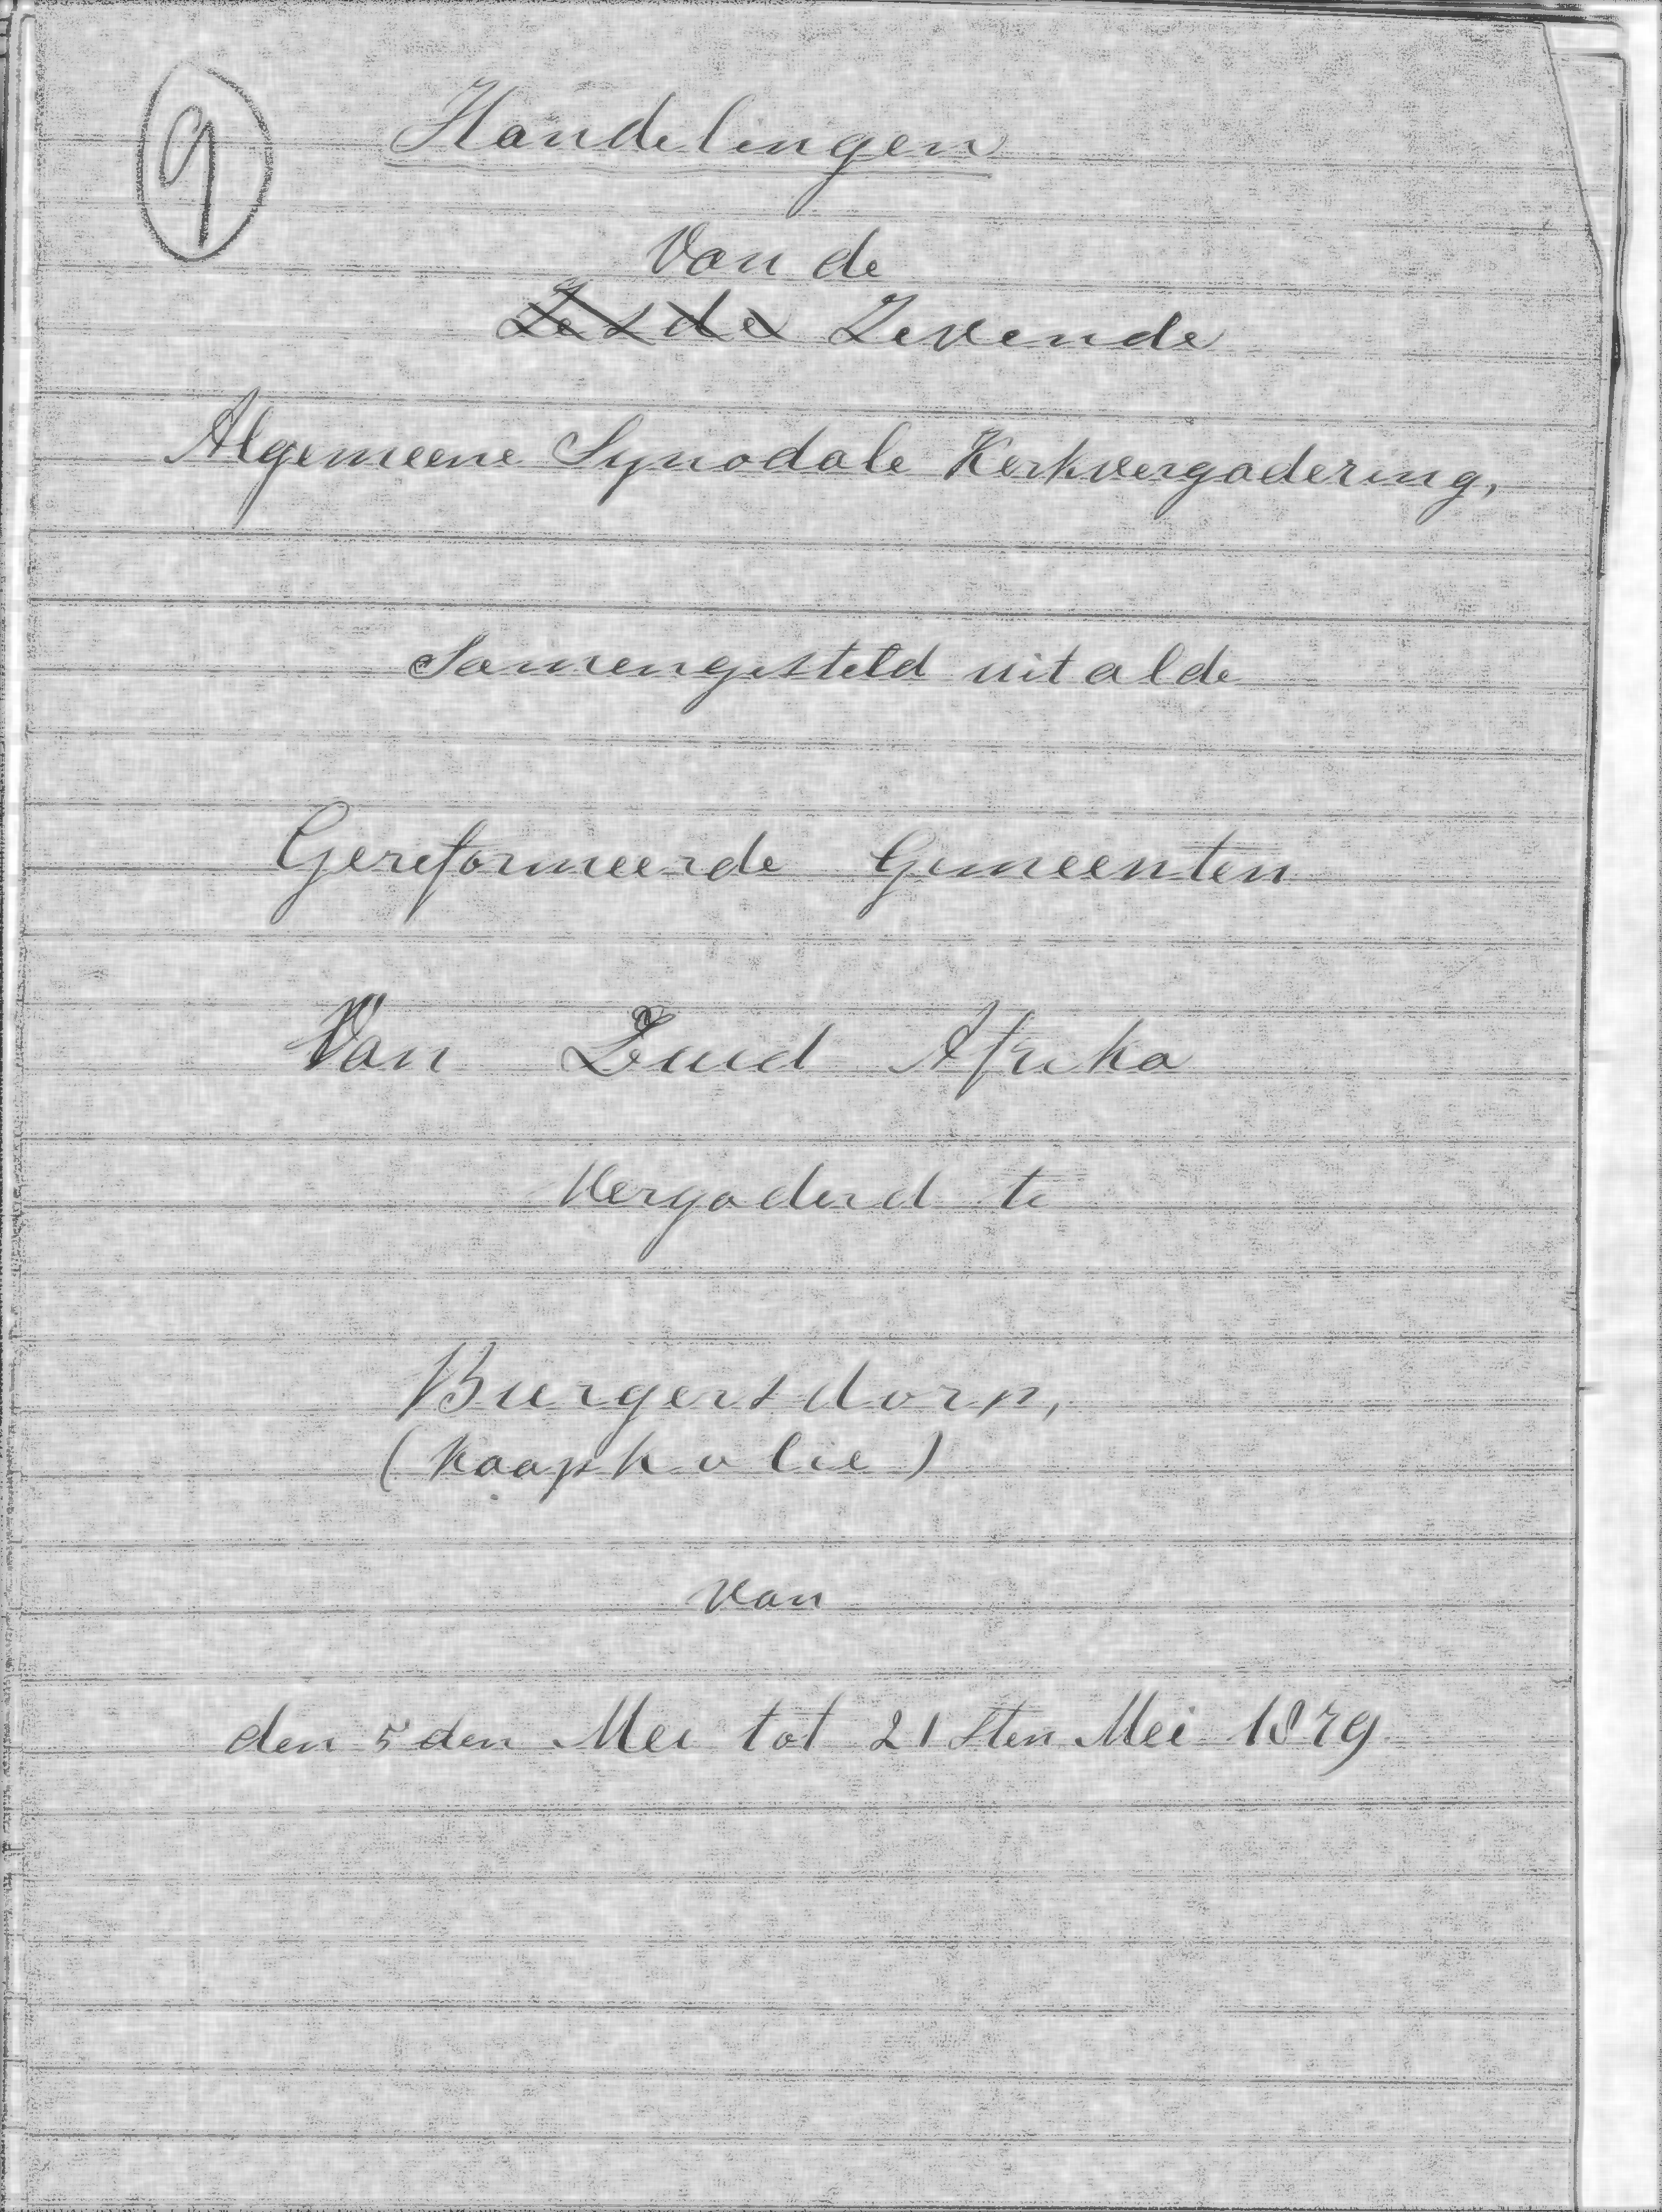 9
Handelingen
Van de
Zesde Zevende
Algemeene Synodale Kerkvergadering,
Samengesteld uit alde
Gereformeerde Gemeenten
Van Zuid Afrika
Vergaderd te
Burgersdorp,
(Kaapkolie)
van
den 5den Mei tot 21sten Mei 1879.